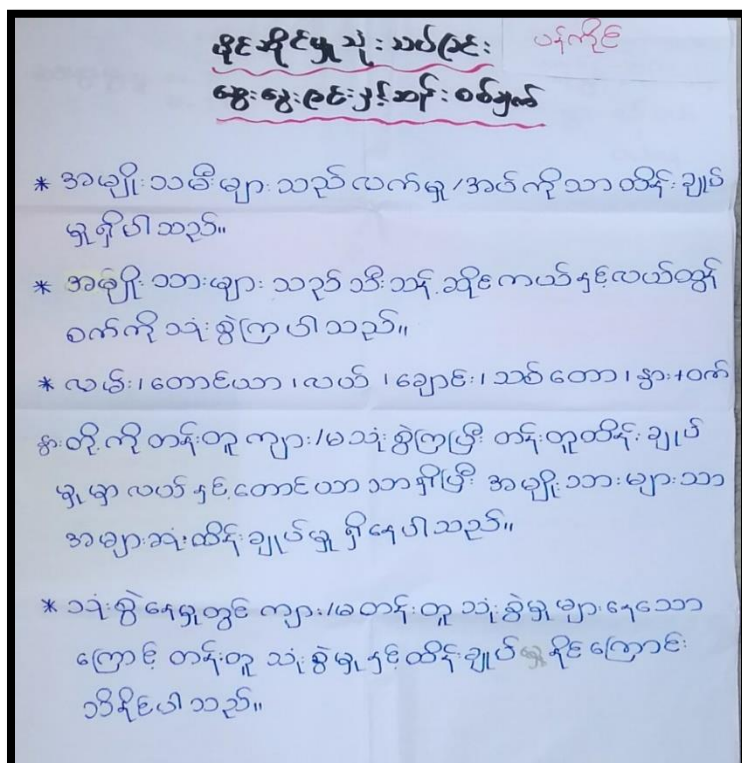 ပန်ကိုင်
ပိုင်ဆိုင်မှုသုံးသပ်ခြင်း
ဆွေးနွေးခြင်းနှင့်ဆန်းစစ်ချက်
* အမျိုးသမီးများသည်လက်မှု/အပ်ကိုသာထိန်းချုပ်
မှုရှိပါသည်။
* အမျိုးသားများသည် သီးသန့်ဆိုင်ကယ်နှင့်လယ်ထွန်
စက်ကိုသုံးစွဲကြပါသည်။
* လမ်း၊တောင်ယာ၊လယ်၊ချောင်း၊သစ်တော၊နွား+ဝက်
နွားတို့ကိုတန်းတူကျား/မသုံးစွဲကြပြီး တန်းတူထိန်းချုပ်
မှုမှာလယ်နှင့်တောင်ယာသာရှိပြီး အမျိုးသားများသာ
အများဆုံးထိန်းချုပ်မှုရှိနေပါသည်။
* သုံးစွဲနေမှုတွင်ကျား/မတန်းတူသုံးစွဲမှုများနေသော
ကြောင့်တန်းတူသုံးစွဲမှုနှင့်ထိန်းချုပ်မှုနိုင်ကြောင်း
သိရှိနိုင်ပါသည်။